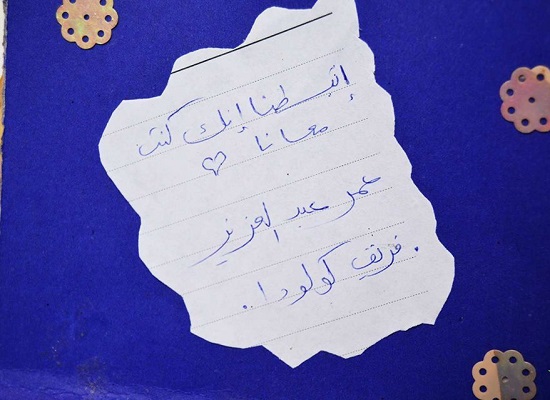 إتبسطنا إنك كنت
معانا ♡
عمر عبد العزيز
فريق كولودا..